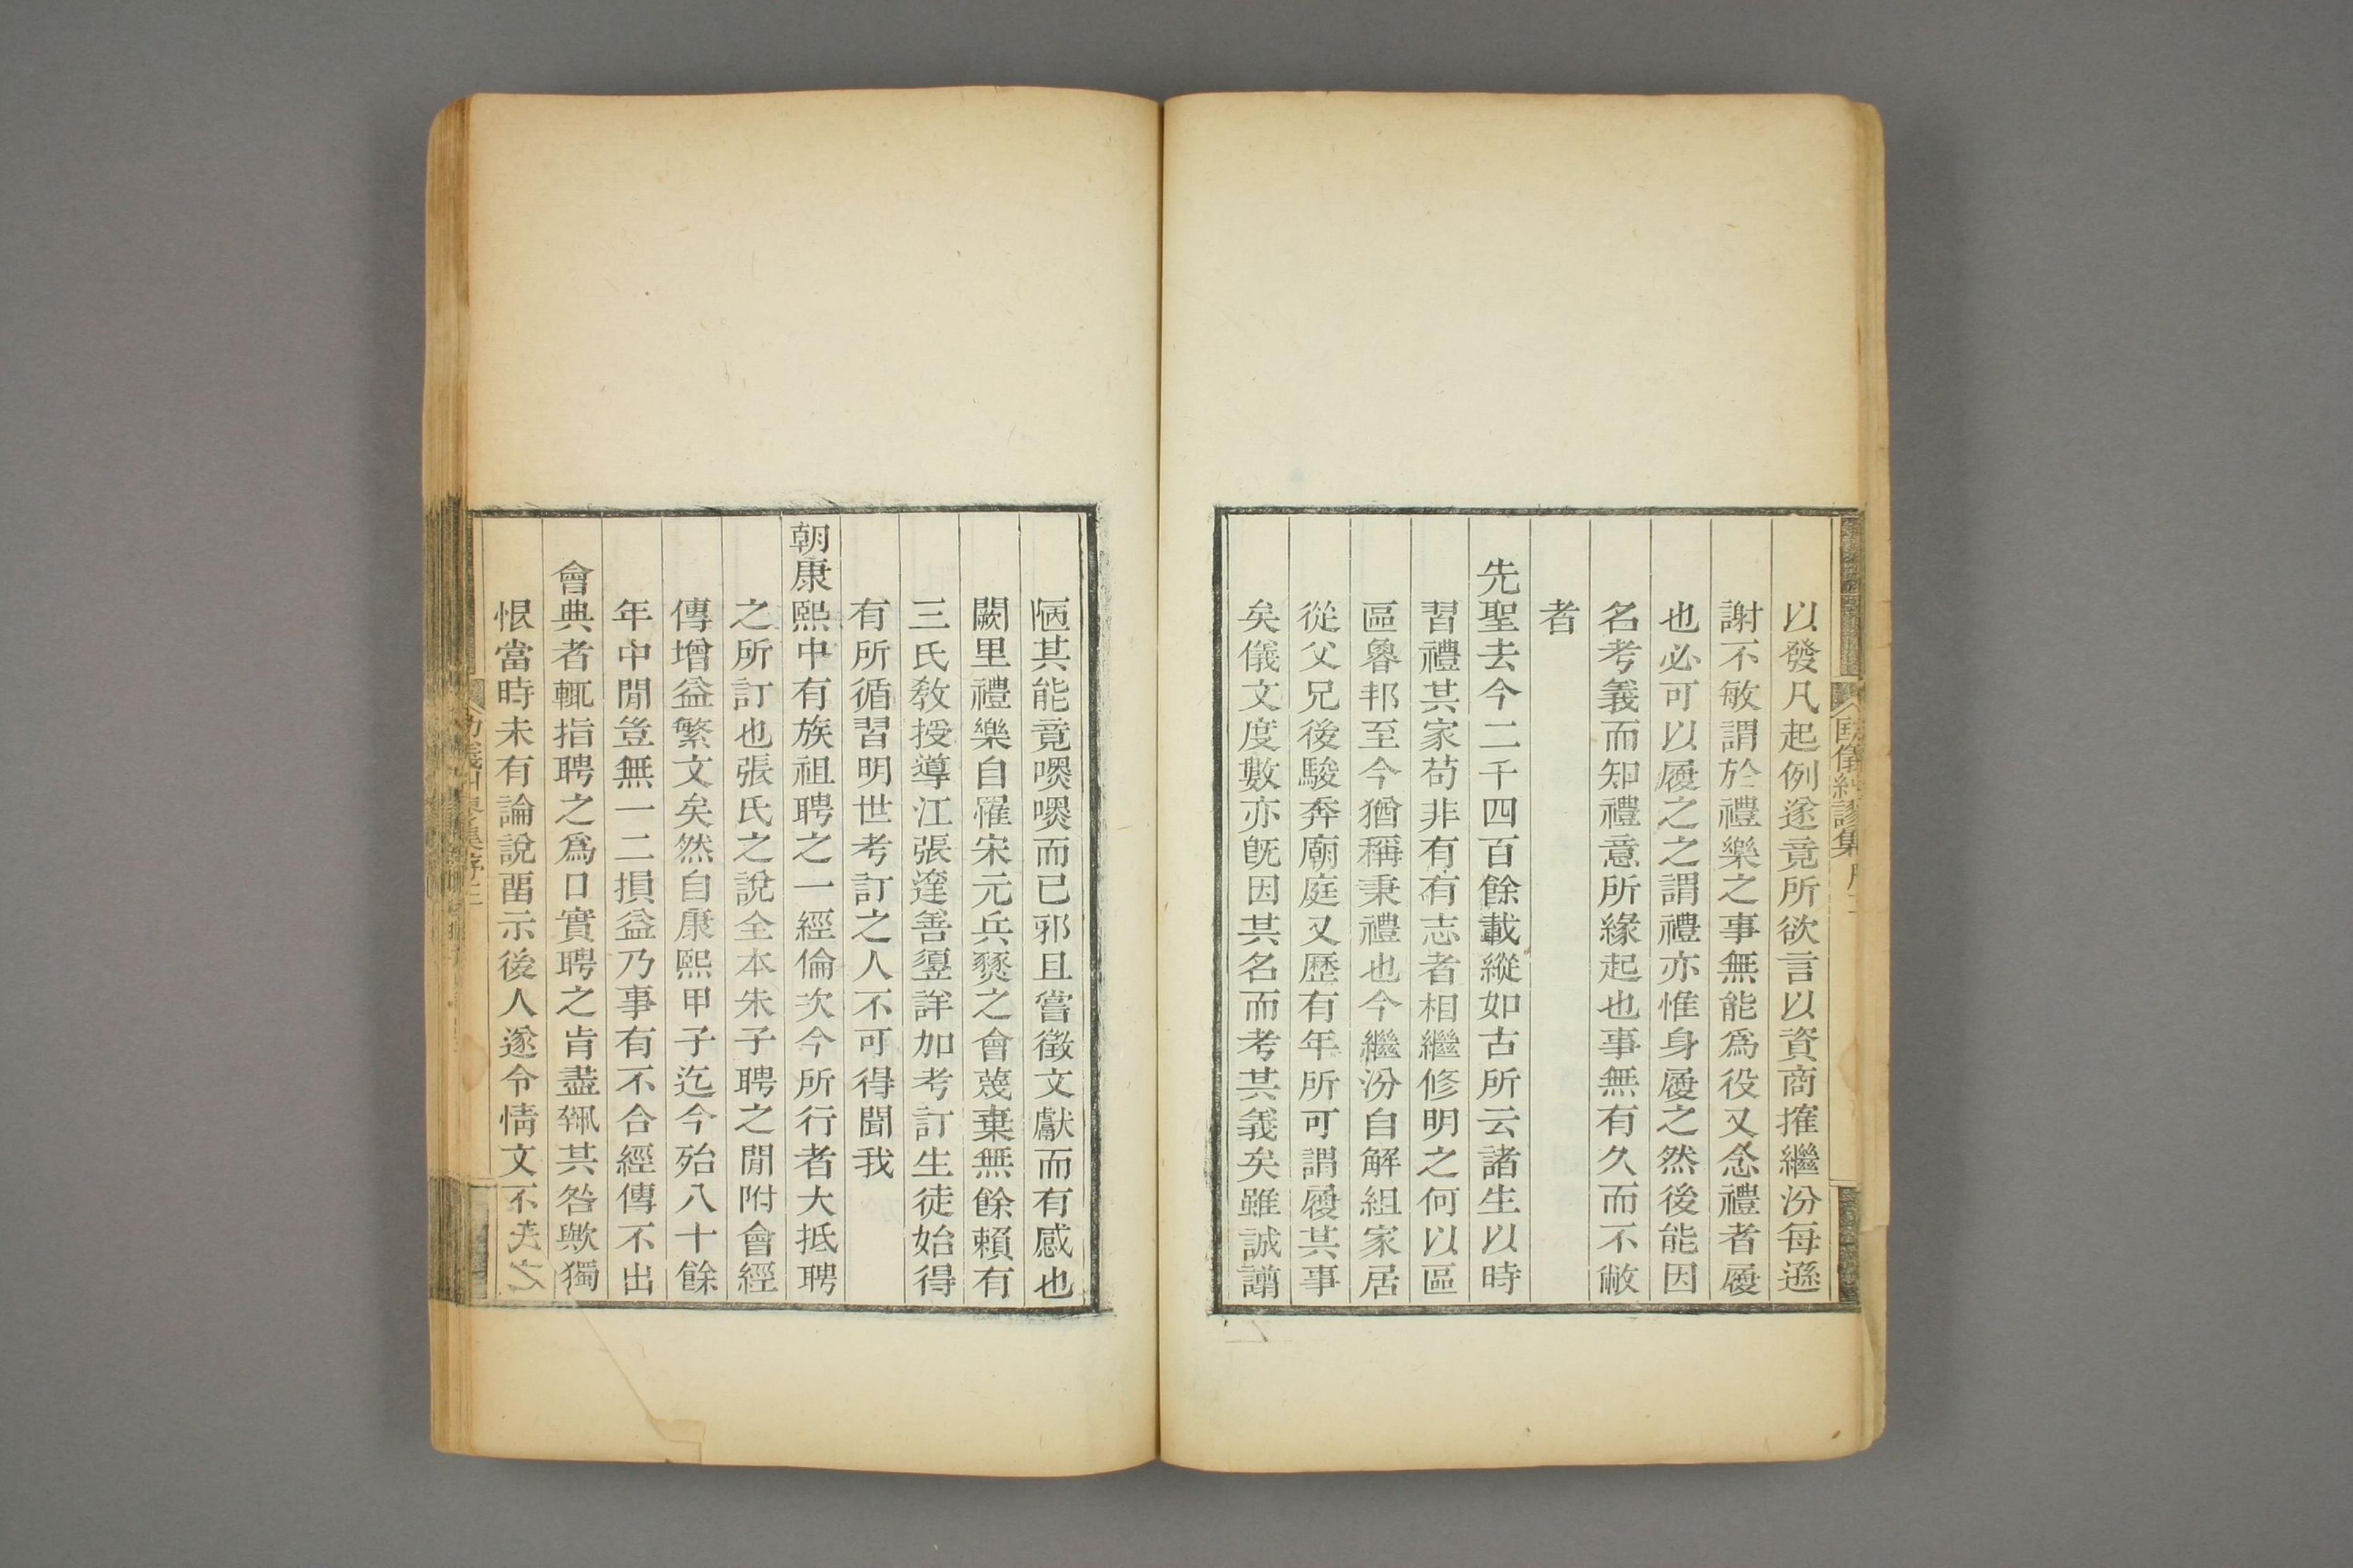 以發凡起例遂竟所欲言以資商搉繼汾每遜
謝不敏謂於禮樂之事無能爲役又念禮者履
也必可以履之之謂禮亦惟身履之然後能因
名考義而知禮意所緣起也事無有久而不敝
者
先聖去今二千四百餘載縱如古所云諸生以時
習禮其家苟非有有志者相繼修明之何以區
區魯邦至今猶稱秉禮也今繼汾自解組家居
從父兄後駿奔廟庭又歷有年所可謂履其事
矣儀文度數亦旣因其名而考其義矣雖誠譾
陋其能竟嘿嘿而已邪且嘗徵文獻而有感也
闕里禮樂自罹宋元兵燹之會蔑棄無餘賴有
三氏敎授導江張達善𢀖詳加考訂生徒始得
有所循習明世考訂之人不可得聞我
朝康熙中有族祖聘之一經倫次今所行者大抵聘
之所訂也張氏之說全本朱子聘之閒附會經
傳增益繁文矣然自康熙甲子迄今殆八十餘
年中閒豈無一二損益乃事有不合經傳不出
會典者輒指聘之爲口實聘之肯盡執其咎歟獨
恨當時未有論說畱示後人遂令情文不